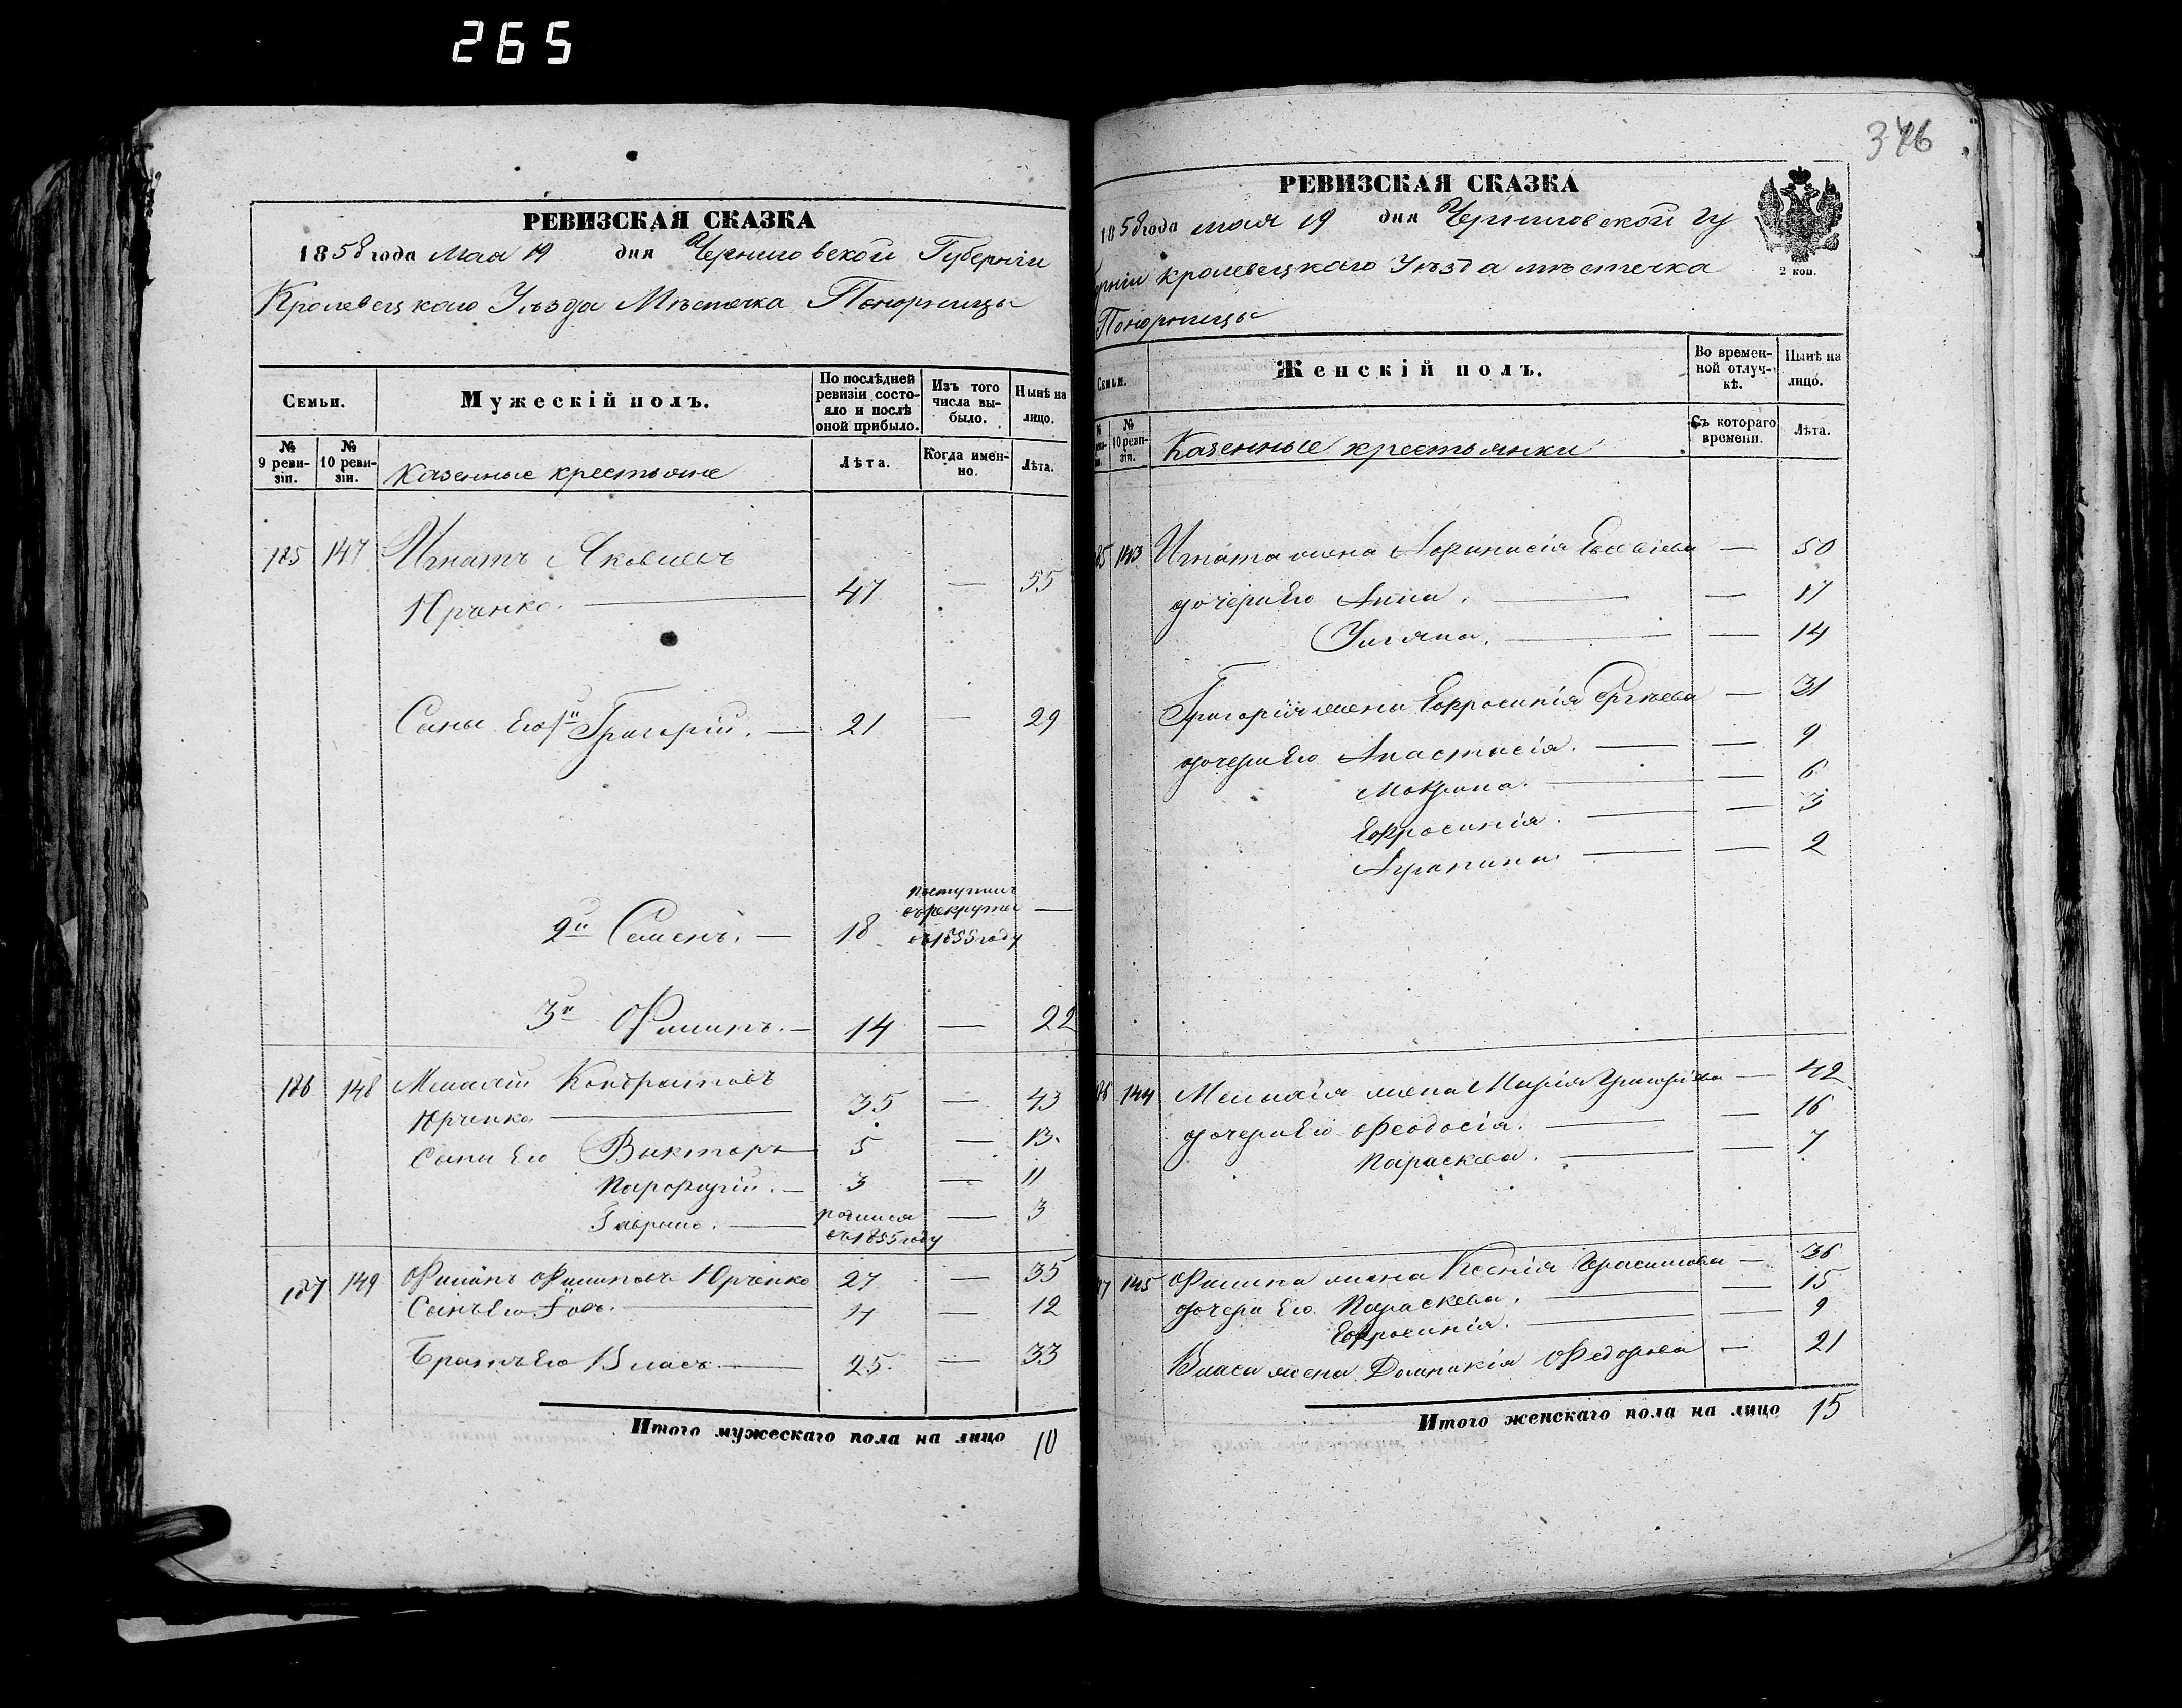 265
376
РЕВИЗСКАЯ СКАЗКА
1858 года Мая 19 дня Черниговской Губерніи
Кролевецкаго Уѣзда Мѣстечка Понорницы
Семьи.
Мужескій полъ.
По послѣдней ревизіи состояло и послѣ оной прибыло.
Изъ того числа выбыло.
Нынѣ на лицо.
№ 9 ревизіи.
№ 10 ревизіи.
Казенные крестьяне
Лѣта.
Когда именно.
Лѣта.
185 147 Игнатъ Яковлевъ
Юрченко. 47 — 55
Сыны Его 1й Григорій. — 21 — 29
2й Семенъ. — 18 поступилъ въ рекруты въ 1855 году —
3й Филипъ. — 14 — 22
186 148 Мелкій Кондратовъ
Юрченко 35 — 43
Сыны Его Викторъ 5 — 13
Парфирій. — 3 — 11
Гаврило. — родился въ 1855 году — 3
187 149 Филипъ Филиповъ Юрченко 27 — 35
Сынъ Его Іовъ. 4 — 12
Братъ Его Власъ 25. — 33
Итого мужескаго пола на лицо 10
РЕВИЗСКАЯ СКАЗКА
1858 года мая 19 дня Черниговской Гу
берніи Кролевецкаго Уѣзда мѣстечка
Понорницы
2 коп.
Семьи.
Женскій полъ.
Во временной отлучкѣ.
Нынѣ на лицо.
№ 10 ревизіи.
Казенные крестьянки
Съ котораго времени.
Лѣта.
85 143 Игната жена Афанасія — 50
дочери Его Анна. — 17
Уляна. — 14
Григорія жена Ефросинія — 31
дочери Его Анастасія. — 9
Мокрина. — 6
Ефросинія. — 3
Агрипина. — 2
86 144 жена Марія Григорьева — 42
дочери Его Феодосія. — 16
Параскева. — 7
87 145 Филипа жена Ксенія Герасимова — 36
дочери Его Параскева. — 15
Ефросинія. — 9
Власа жена Домникія Федорова — 21
Итого женскаго пола на лицо 15